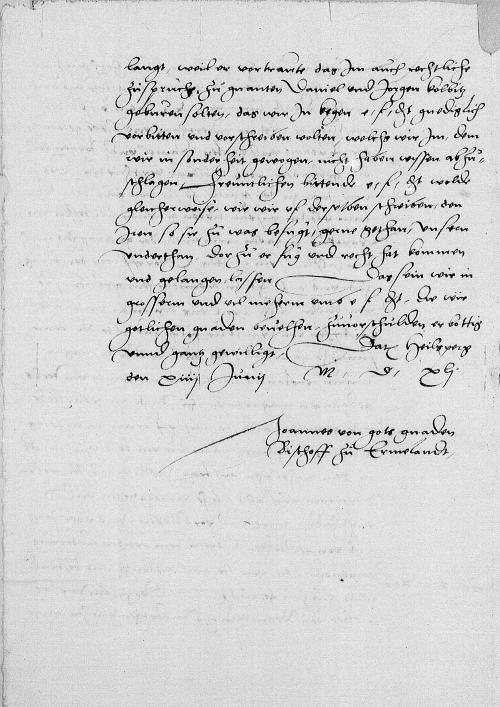 langt, weil er vertraute das im auch rechtliche
zuspruche zu gnanten Daniel und Jorgen
geburen solten, das wir in kegen e f dt gnediglich
vorbitten und vorschreiben wolten, welchs wir im, dem
wir in sonderheit gewogen, nicht haben wissen abzu-
schlagen, Freuntlichen bittende e f dt wolde
gleicherweise, wie wir uf derselben schreiben, den
iren so sie zu was befugt, gerne gethan, unsern
underthan, dorzu er fug und recht hat komen
und gelangen lassen Das sein wir in
grosserm und vil mehrem umb e f dt, die wir
gotlichen gnaden bevelhen, zuvorschulden erbottig
unnd gantz gewilligt. Dat Heilsperg
den xiiij Junij M D xlj
Joannes von gots gnaden
Bischoff zu Ermelandt.